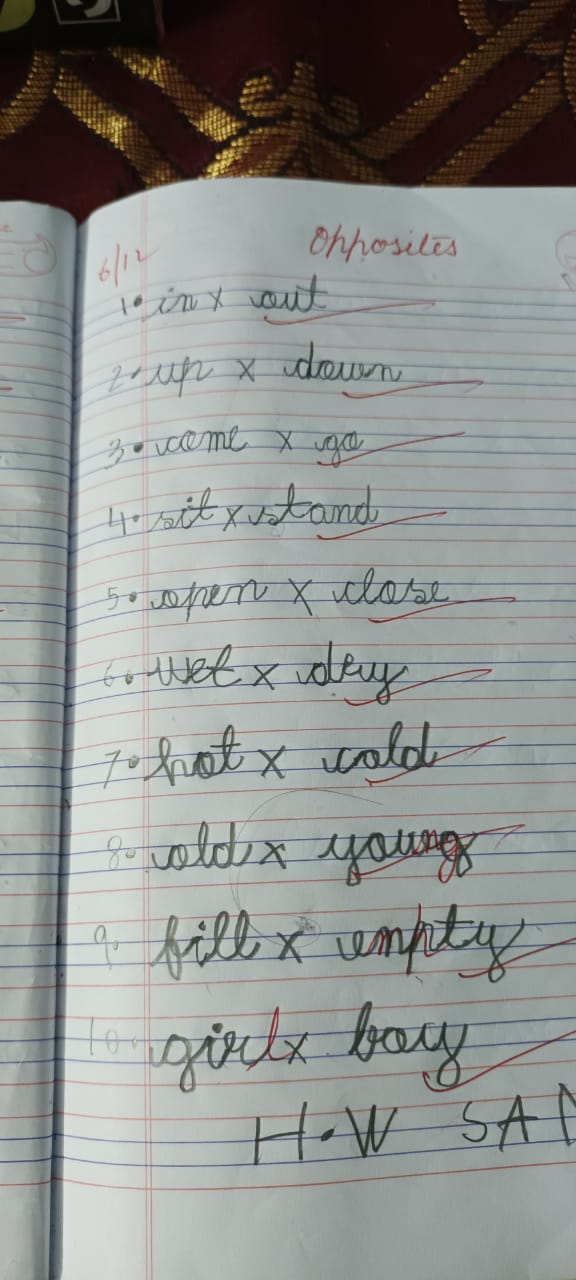 Opposites
6/12
1. in x out
2. up x down
3. come x go
4. sit x stand
5. open x close
6. wet x dry
7. hot x cold
8. old x young
9. fill x empty
10. girl x boy
H.W SAM